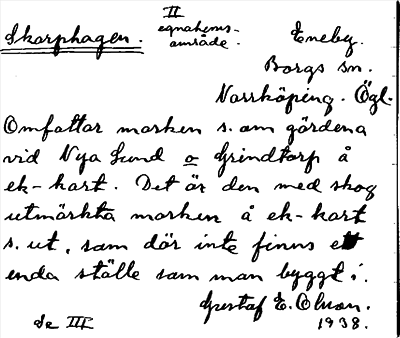 Skarphagen. II
egnahems-
område. Eneby.
Borgs sn.
Norrköping. Ögl.
Omfattar marken s. om gårdena
vid Nya Lund o Grindtorp å
ek-kart. Det är den med skog
utmärkta marken å ek-kart
s. ut, som där inte finns ett
enda ställe som man byggt i.
Gustaf E. Olsson.
Se III 1938.